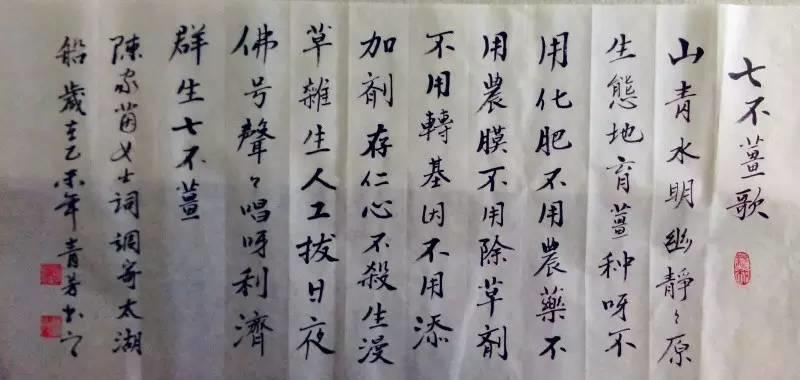 七不薑歌
山青水明幽靜々原
生態地育薑种呀不
用化肥不用農藥不
用農膜不用除草剂
不用轉基因不用添
加剂存仁心不殺生漫
草雜生人工拔日夜
佛号聲々唱呀利濟
群生七不薑
陳家茵女士詞調寄太湖
船歲在乙未年青芳书